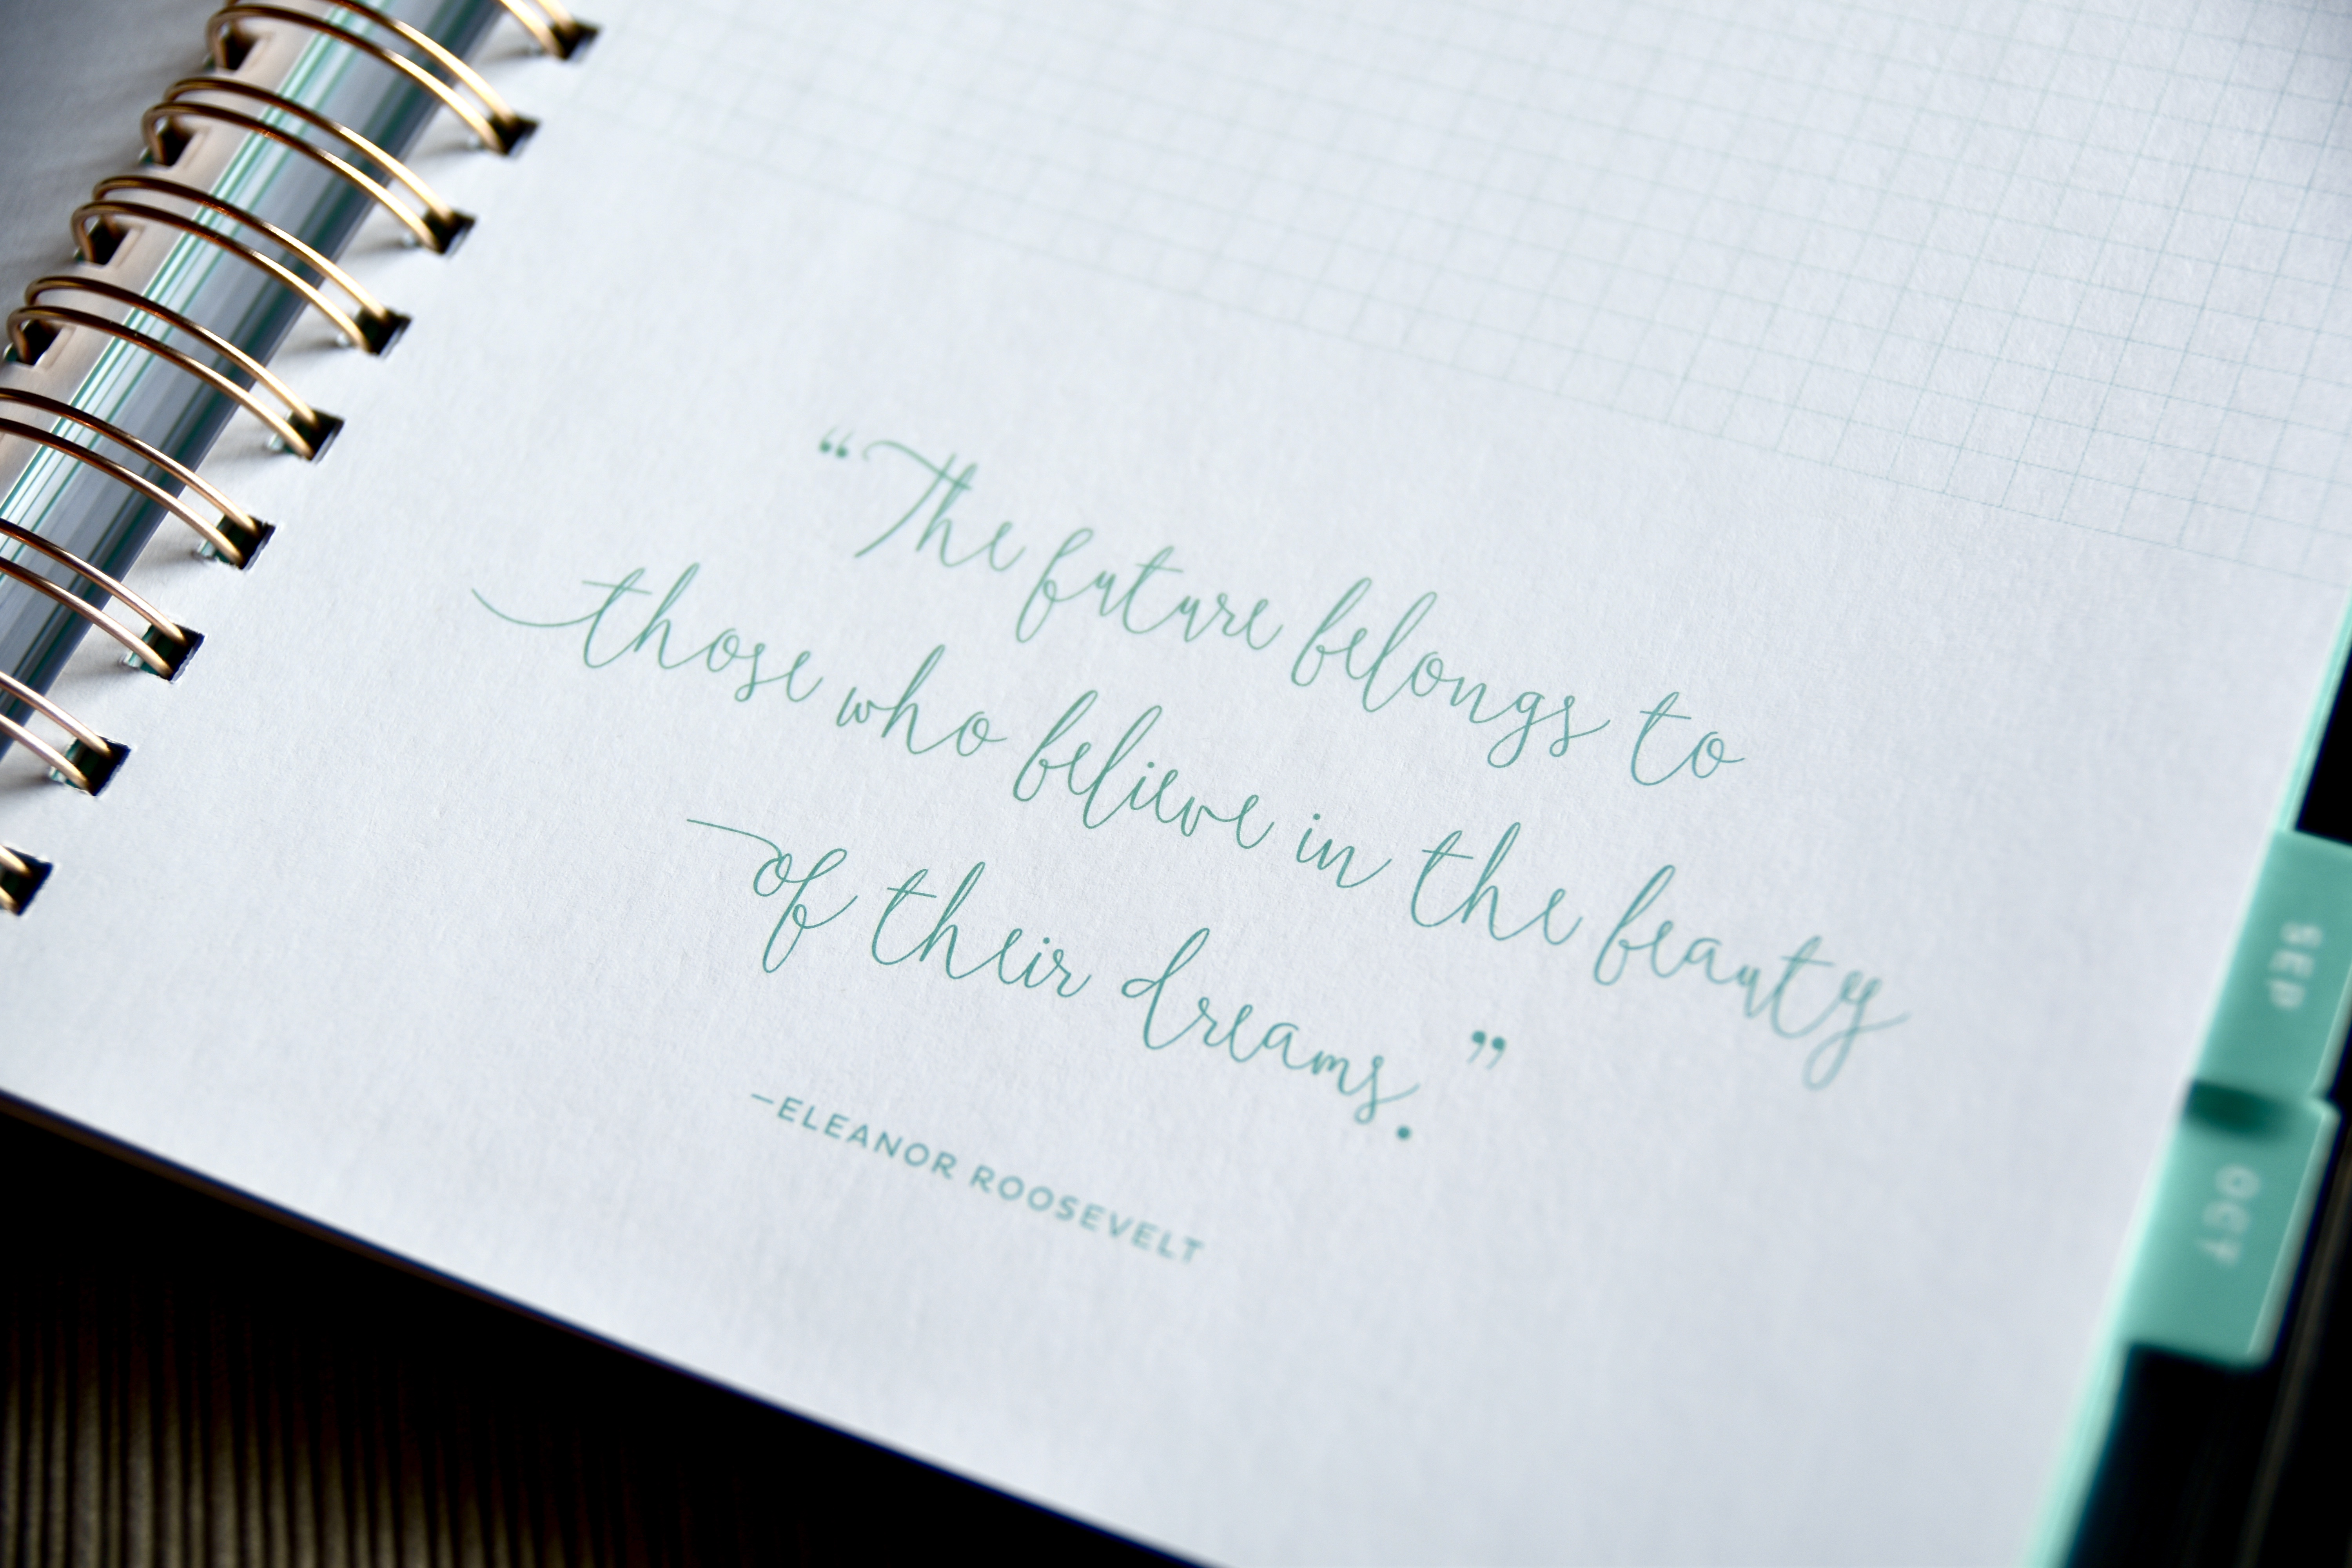 “The future belongs to
those who believe in the beauty
of their dreams.”
–ELEANOR ROOSEVELT
SEP
OCT